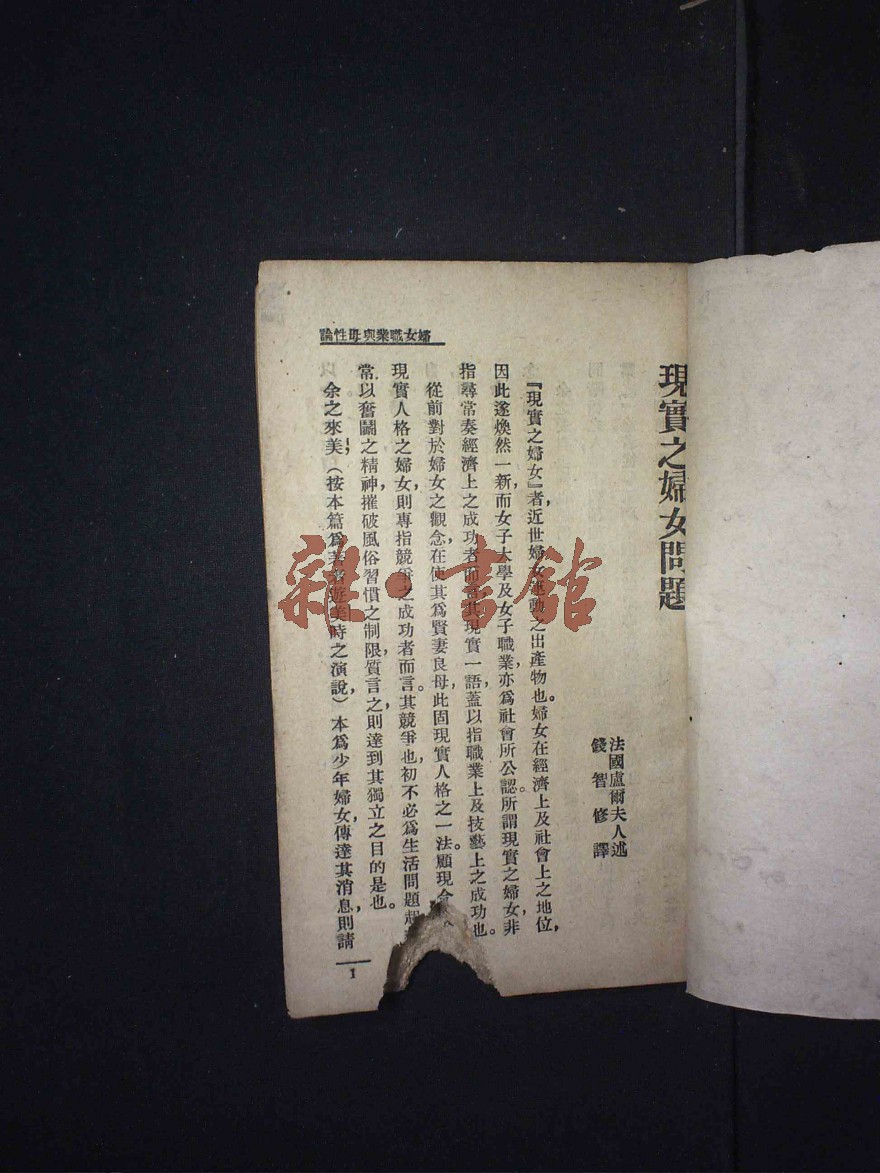 現實之婦女問題
法國盧爾夫人述
錢智修譯
『現實之婦女』者，近世婦女運動之出產物也。婦女在經濟上及社會上之地位，
因此遂煥然一新，而女子大學及女子職業，亦爲社會所公認。所謂現實之婦女，非
指尋常奏經濟上之成功者而言，其現實一語，蓋以指職業上及技藝上之成功也。
從前對於婦女之觀念，在使其爲賢妻良母，此固現實人格之一法，顧現今
現實人格之婦女，則專指競爭之成功者而言。其競爭也，初不必爲生活問題起
常以奮鬭之精神，摧破風俗習慣之制限，質言之，則達到其獨立之目的是也。
余之來美，（按本篇爲著者遊美時之演說）本爲少年婦女傳達其消息，則請
婦女職業與母性論
1
雜·書館